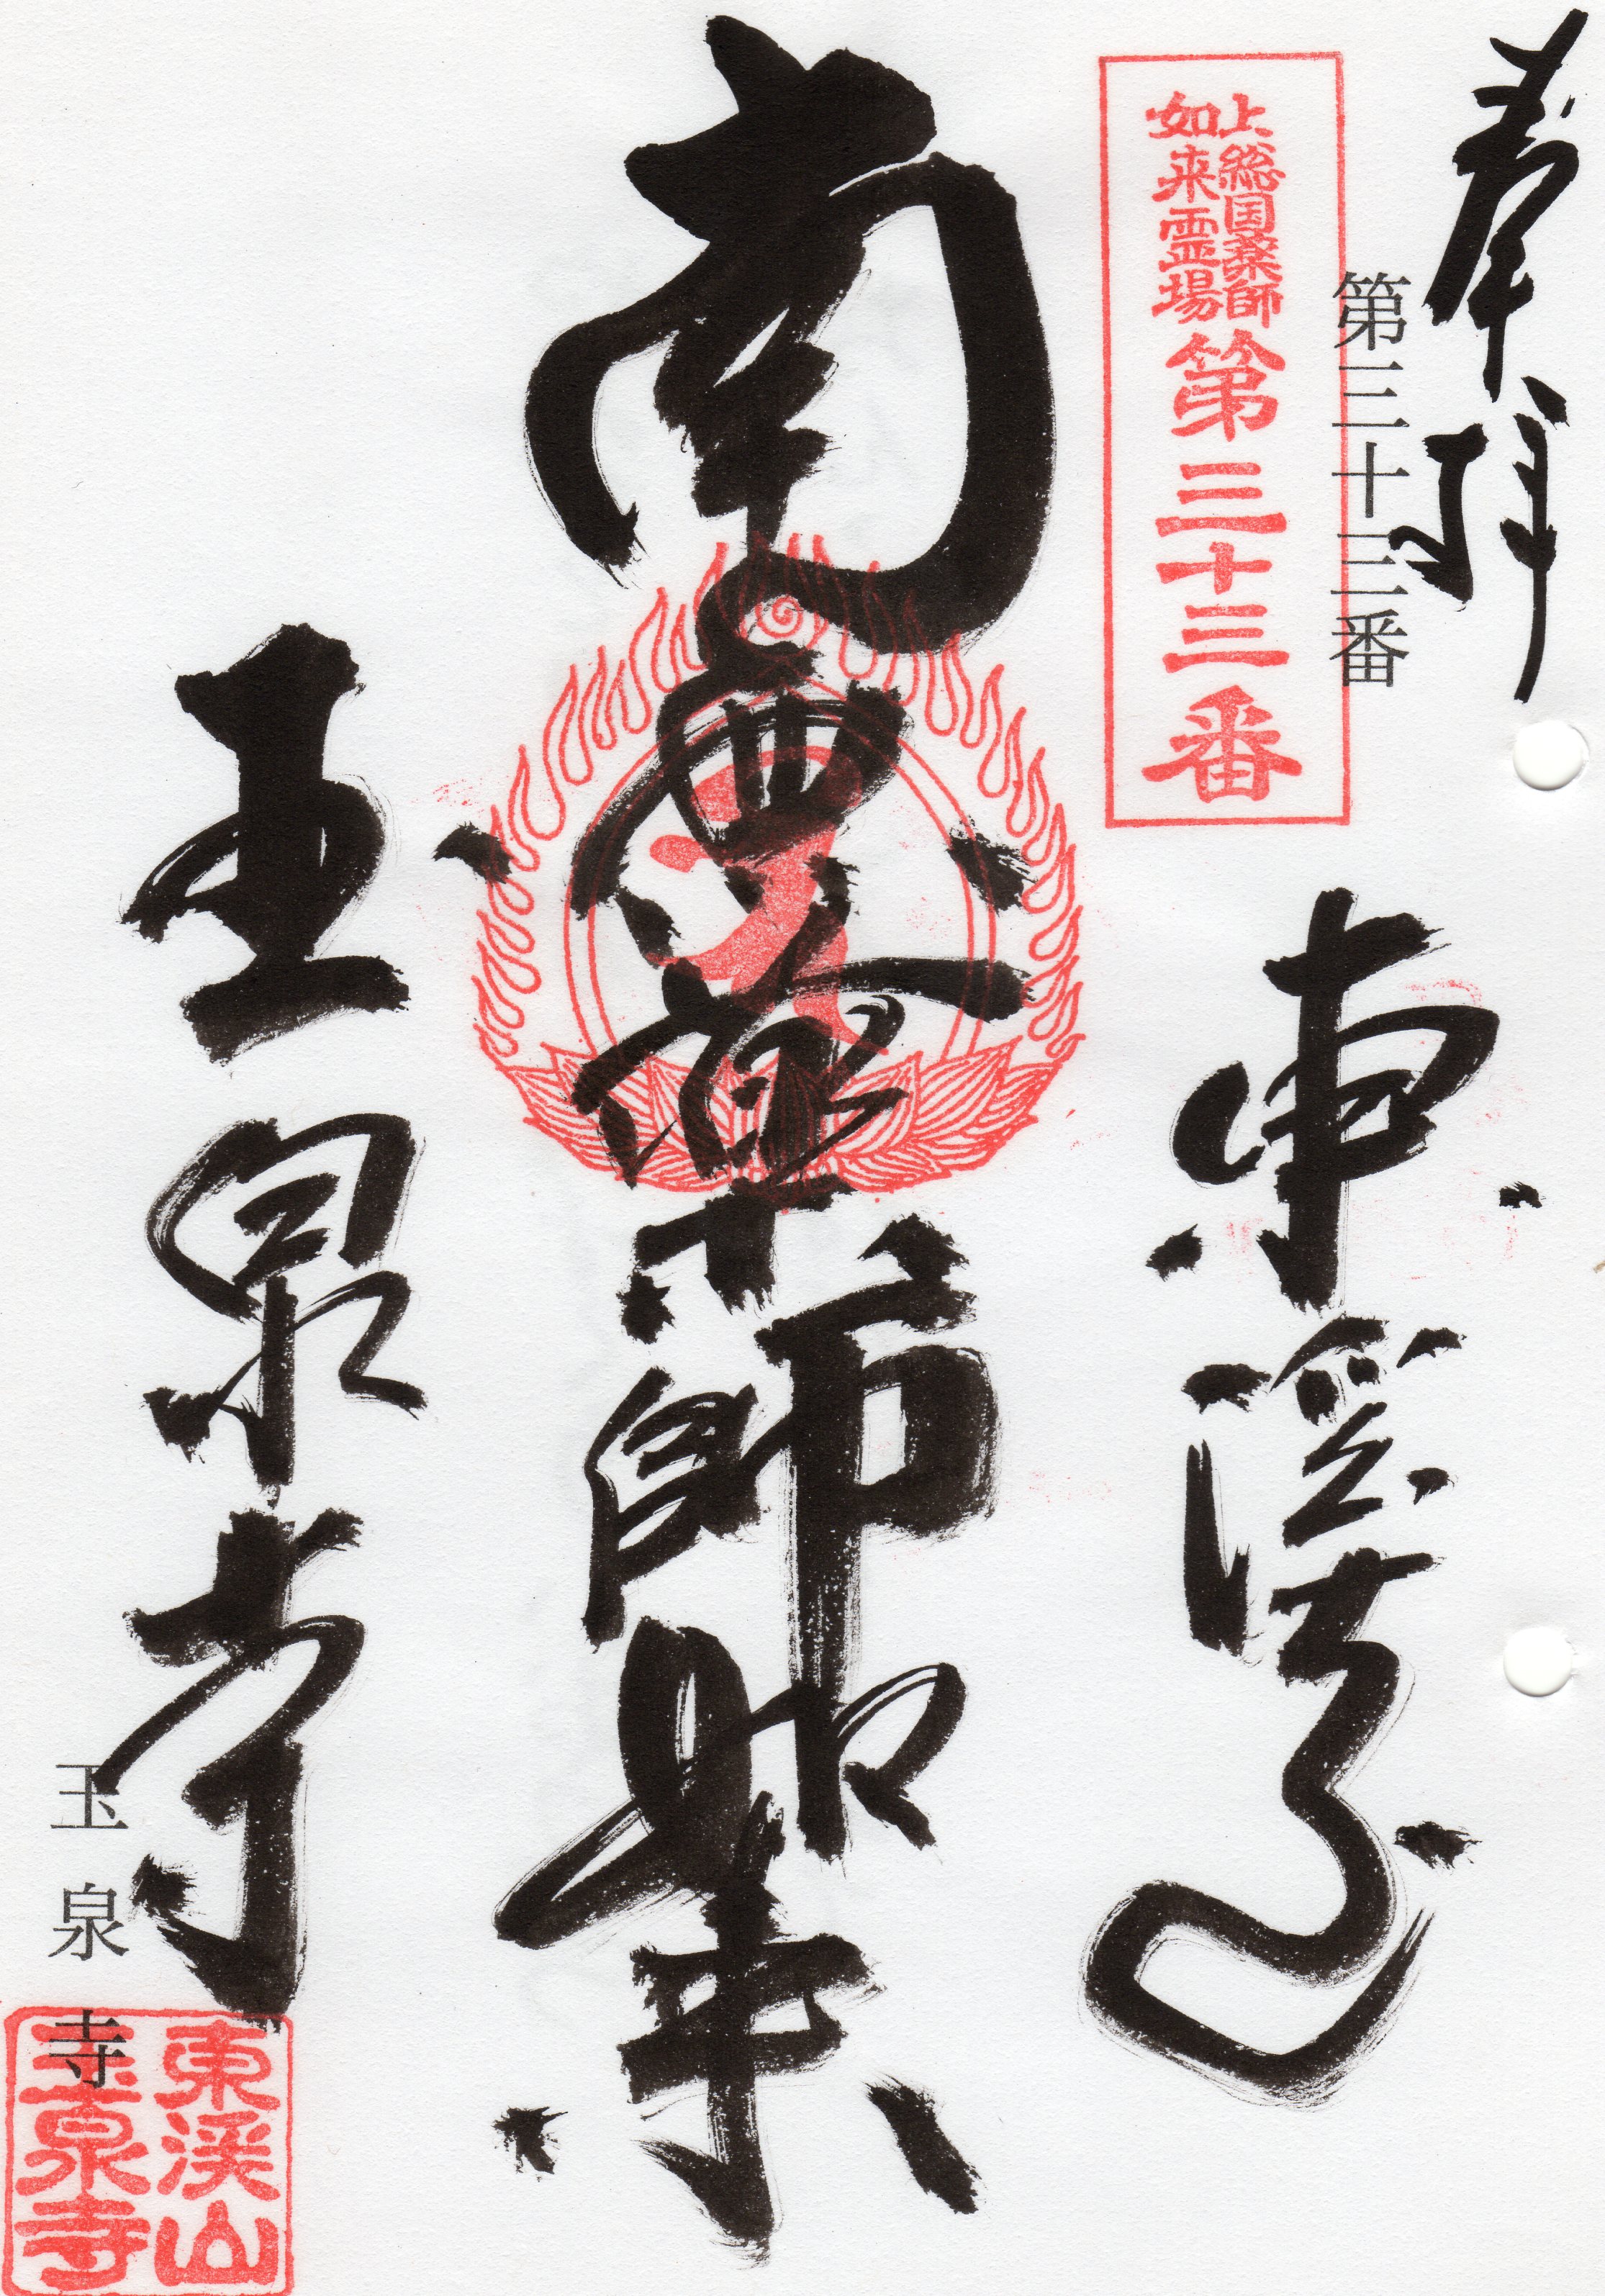 奉拝
第三十三番
上総国薬師
如来霊場
第三十三番
東溪山
南無薬師如来
玉泉寺
玉泉寺
東溪山
玉泉寺